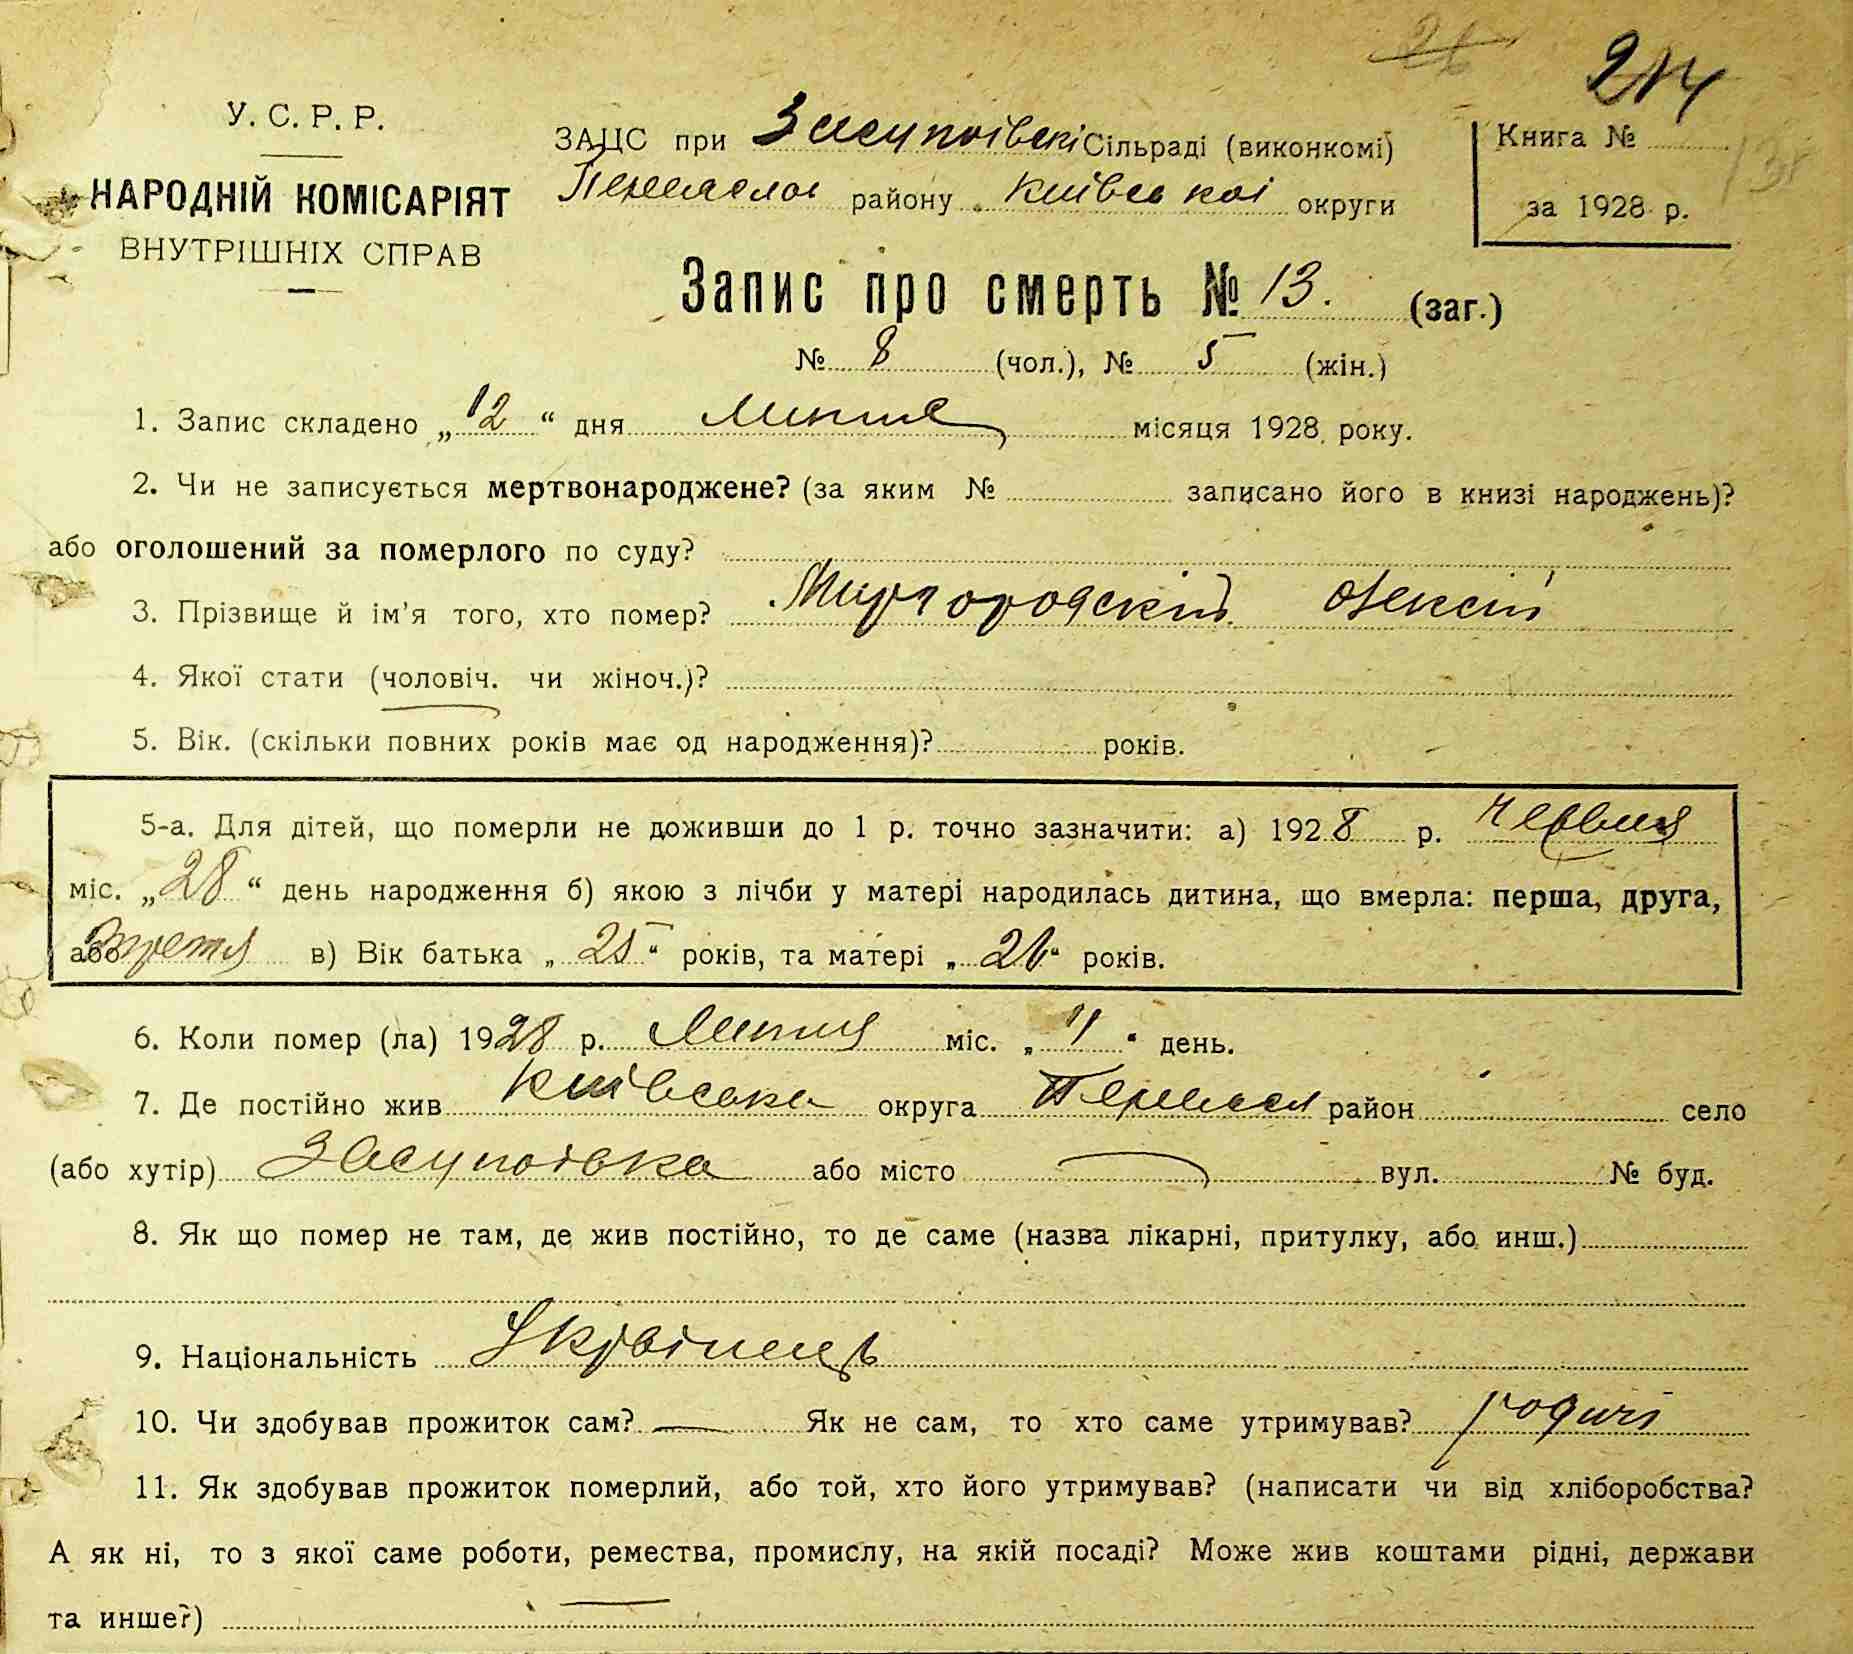 26
214
У. С. Р. Р.
НАРОДНІЙ КОМІСАРІЯТ
ВНУТРІШНІХ СПРАВ
ЗАЦС при Засупоівскі Сільраді (виконкомі)
Переяслов району Київськоі округи
Книга №
за 1928 р.
Запис про смерть № 13. (заг.)
№ 8 (чол.), № 5 (жін.)
1. Запис складено „12“ дня Липня місяця 1928 року.
2. Чи не записується мертвонароджене? (за яким № записано його в книзі народжень)?
або оголошений за померлого по суду?
3. Прізвище й ім’я того, хто помер? Миргородскій Олексій
4. Якої стати (чоловіч. чи жіноч.)?
5. Вік. (скільки повних років має од народження)? років.
5-а. Для дітей, що померли не доживши до 1 р. точно зазначити: а) 1928 р. Червня
міс. „28“ день народження б) якою з лічби у матері народилась дитина, що вмерла: перша, друга,
або третя в) Вік батька „25“ років, та матері „26“ років.
6. Коли помер (ла) 1928 р. Липня міс. „11“ день.
7. Де постійно жив Київська округа Переясл район село
(або хутір) Засупоівка або місто вул. № буд.
8. Як що помер не там, де жив постійно, то де саме (назва лікарні, притулку, або инш.)
9. Національність Українець
10. Чи здобував прожиток сам? — Як не сам, то хто саме утримував? родичі
11. Як здобував прожиток померлий, або той, хто його утримував? (написати чи від хліборобства?
А як ні, то з якої саме роботи, ремества, промислу, на якій посаді? Може жив коштами рідні, держави
та инше?)